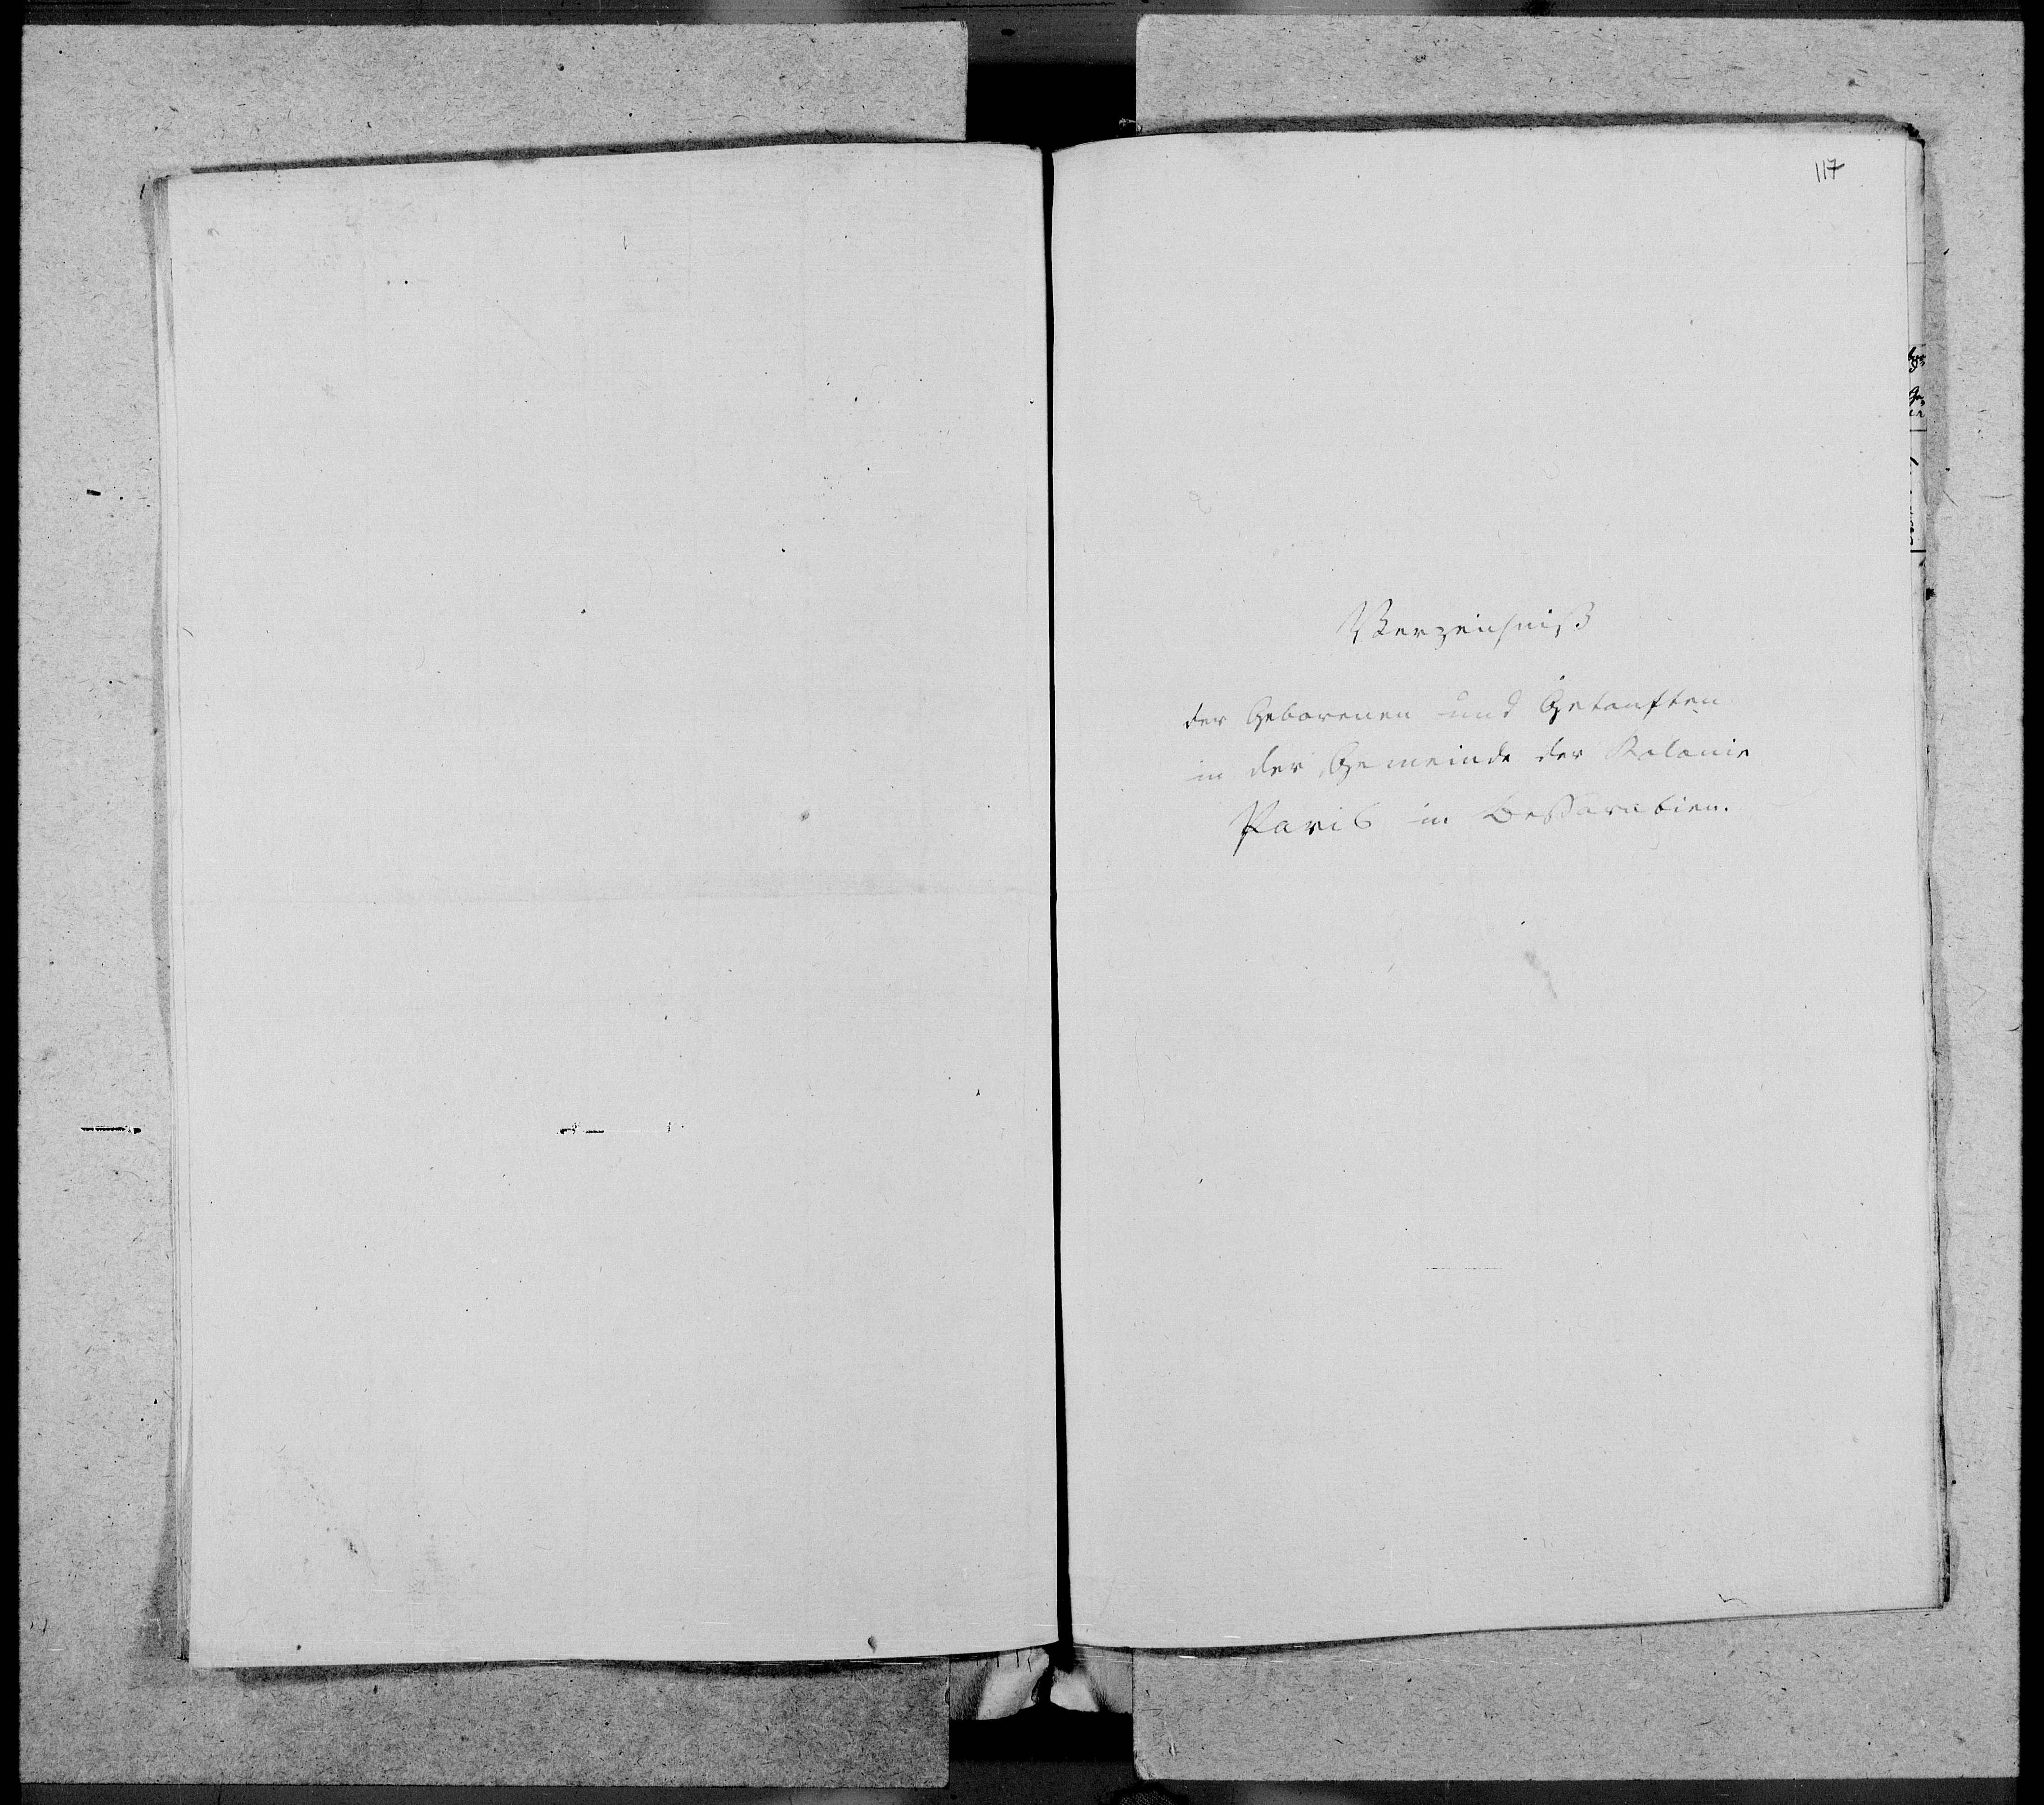 117
Verzeichniß
der Geborenen und Getauften
in der Gemeinde der Kolonie
Paris in Beßarabien.